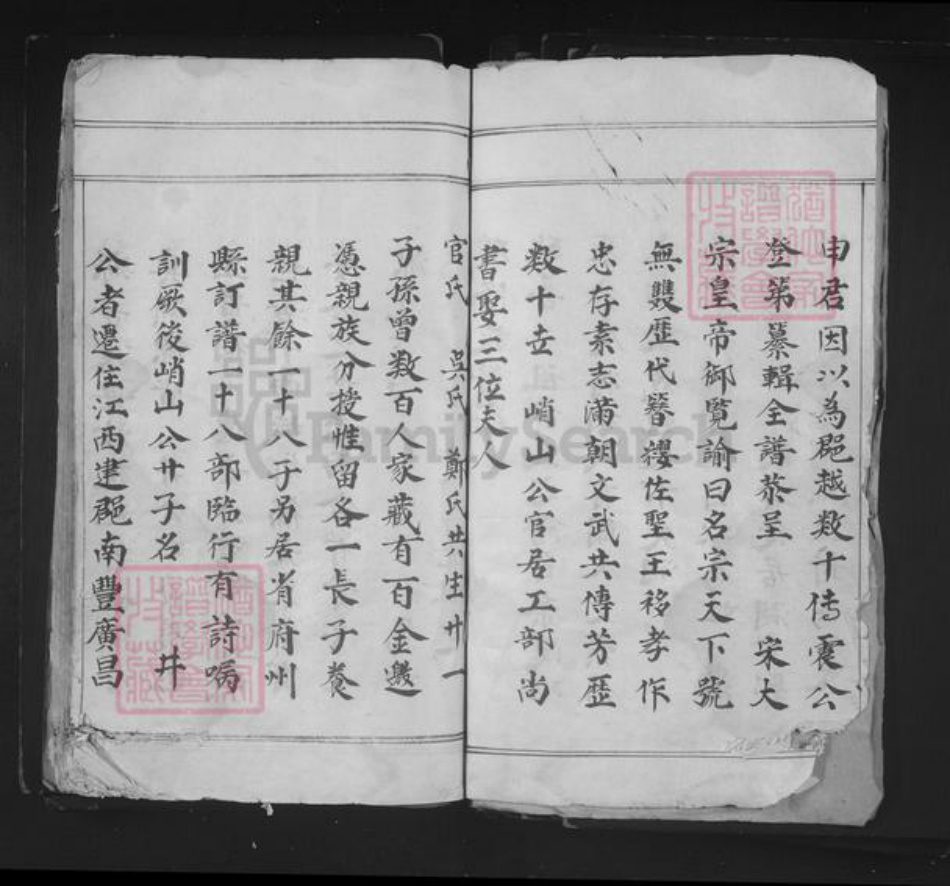 申君因以為郡越数十傳震公
登第纂輯全譜恭呈 宋太
宗皇帝御覧諭曰名宗天下號
無雙歷代簪纓佐聖王移孝作
忠存素志滿朝文武共傳芳歷
数十世 峭山公官居工部尚
書娶三位夫人
官氏 吳氏 鄭氏共生廿一
子孫曾数百人家藏有百金邀
憑親族分授惟留各一長子養
親其餘一十八子另居省府州
縣訂譜一十八部臨行有詩嘱
訓厥後峭山公廿子名 井
公者遷住江西建郡南豐廣昌
FamilySearch